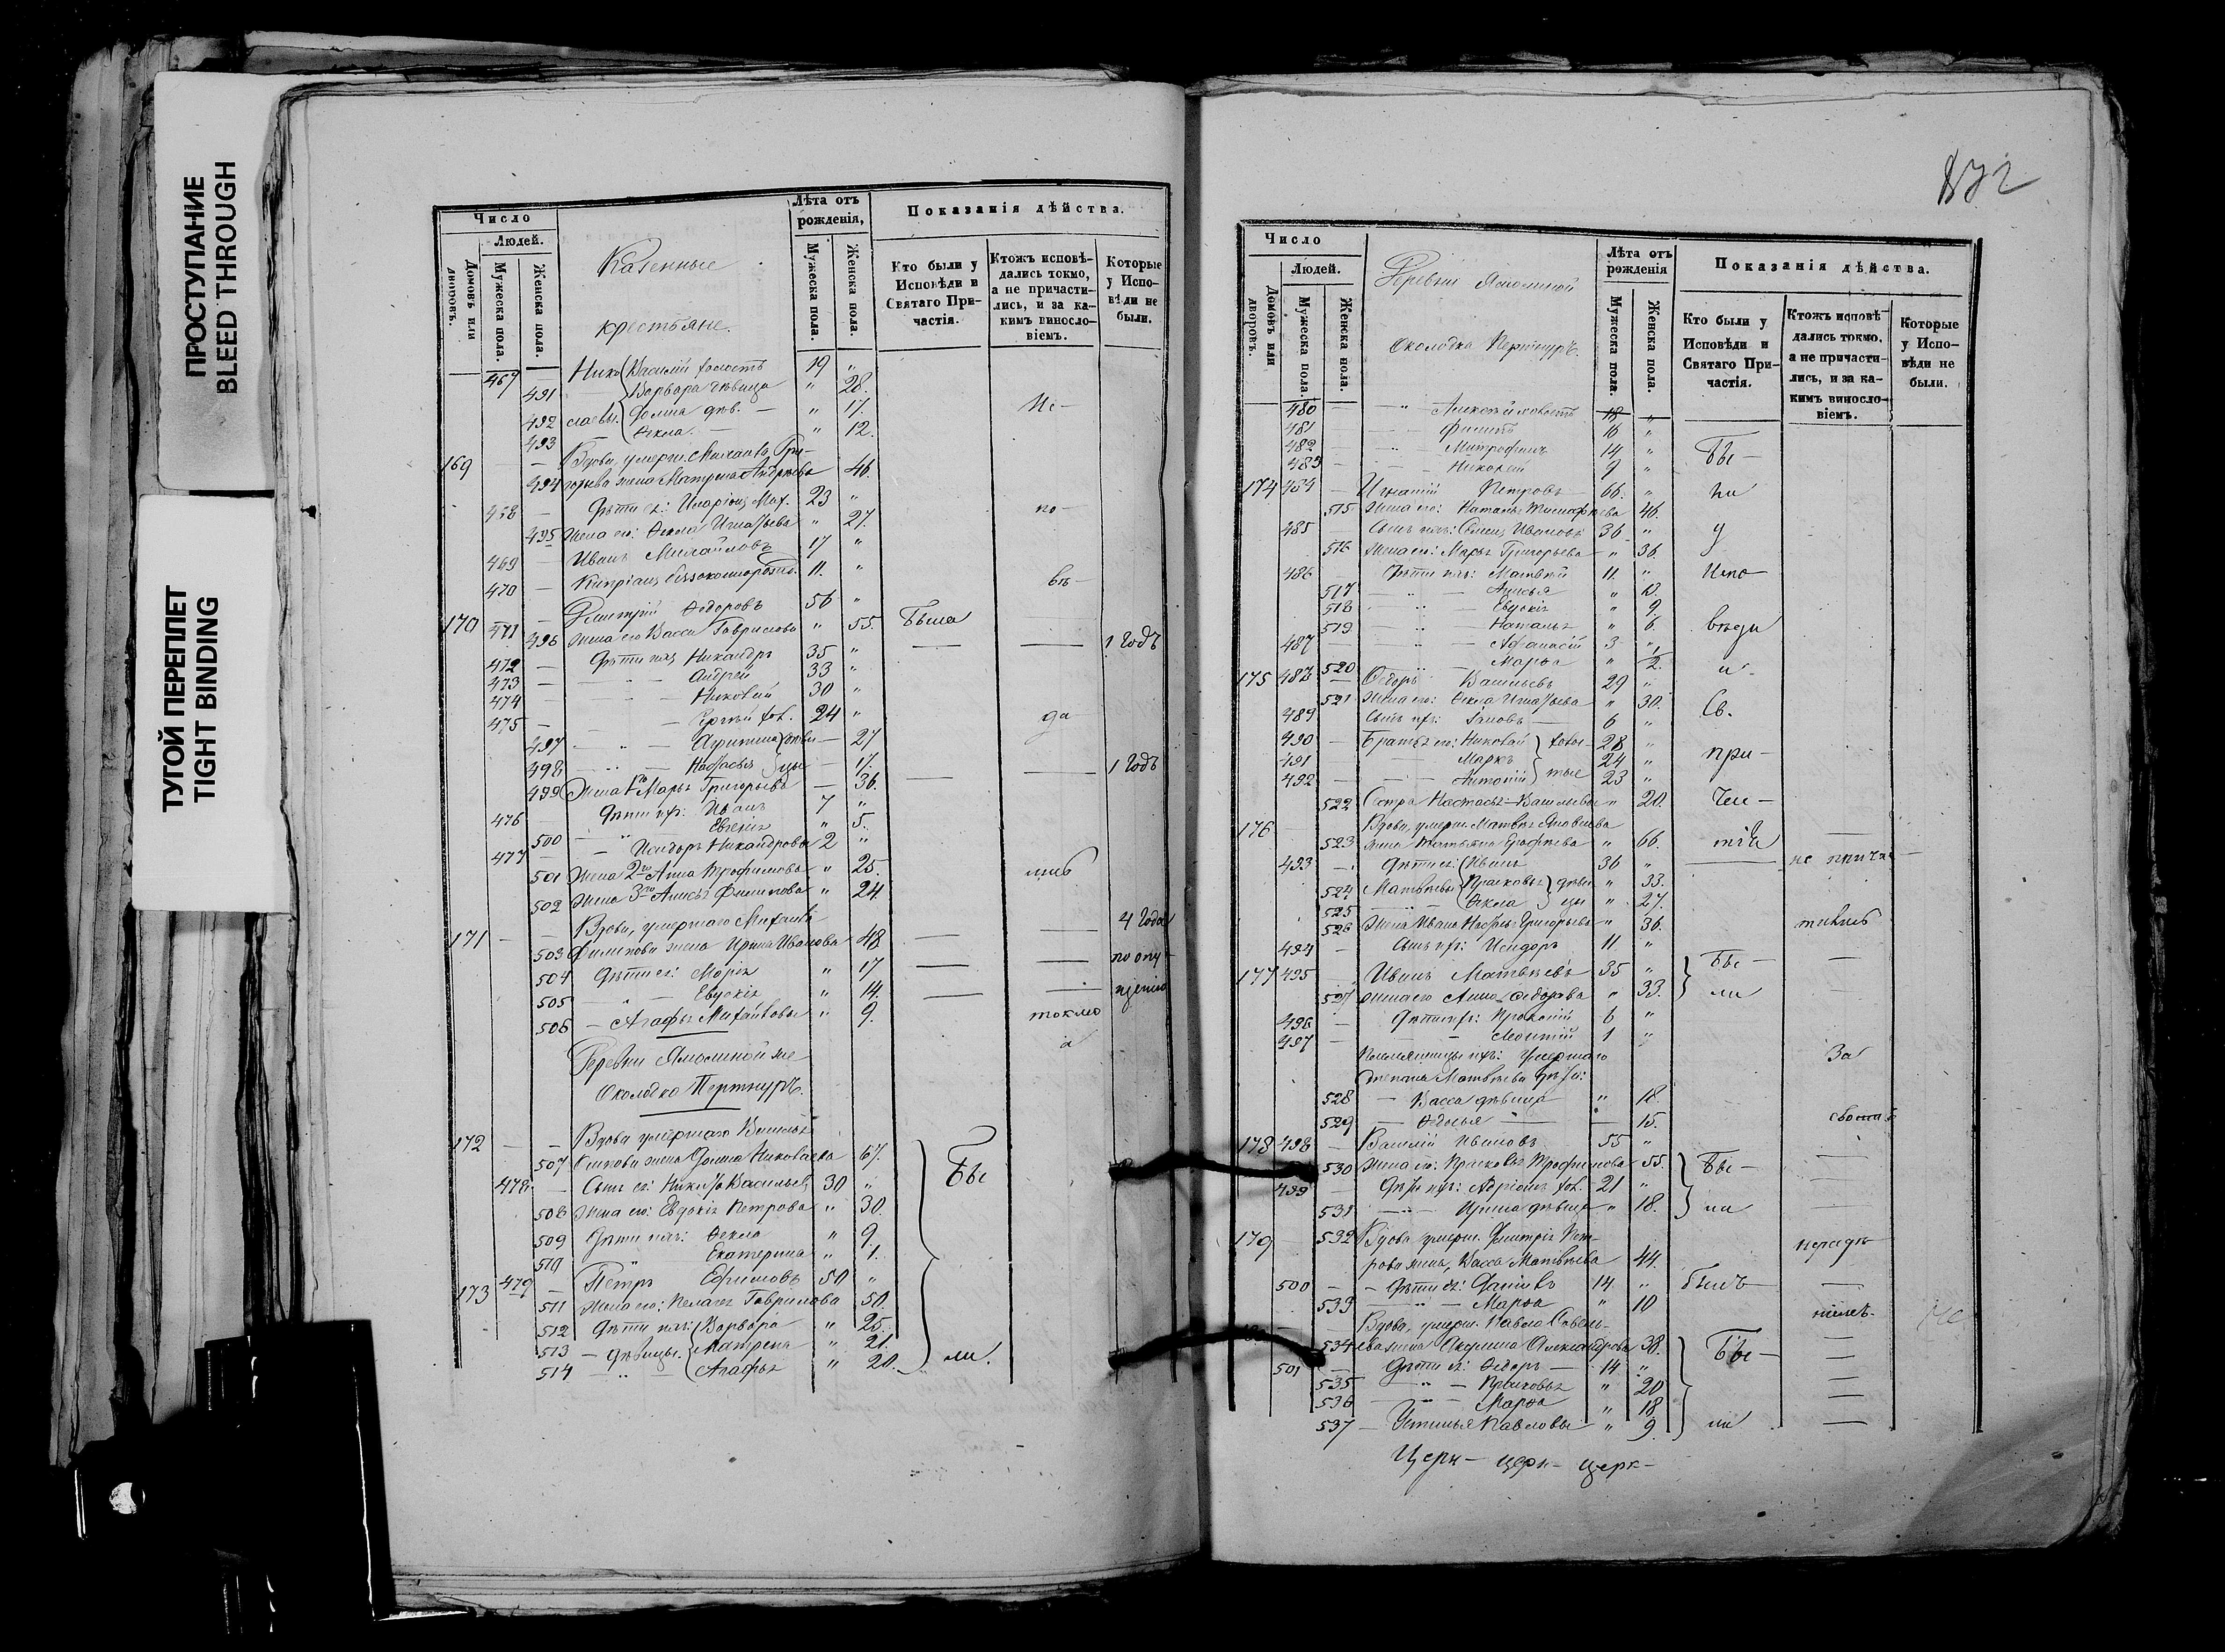 ПРОСТУПАНИЕ
BLEED THROUGH
ТУГОЙ ПЕРЕПЛЕТ
TIGHT BINDING
Число
Людей.
Домовъ или дворовъ.
Мужеска пола.
Женска пола.
Казенные
крестьяне.
Лѣта отъ рожденія,
Мужеска пола.
Женска пола.
Показанія дѣйства.
Кто были у Исповѣди и Святаго Причастія.
Ктожъ исповѣдались токмо, а не причастились, и за какимъ винословіемъ.
Которые у Исповѣди не были.
467 Василій холостъ 19 "
491 Варвара дѣвица " 28.
492 дѣв. — " 17.
493 Ѳекла — " 12.
Не —
169 — — Вдова, умерш. Михаила Гри-
494 горьева жена Матрена Андреева 46.
468 — Дѣти ея: Иларіонъ Мих. 23 "
по —
495 Жена его: Ѳекла Игнатьева " 27.
469 — Иванъ Михайловъ 17 "
470 — Кипріанъ 11. "
вѣ —
170 471 — Дмитрій Ѳедоровъ 56 "
496 Жена его Васса Гаврилова " 55. Была
1 годъ
472 — Дѣти ихъ Никандръ 35 "
473 — Андрей 33 "
474 — Николай 30 "
475 — Сергѣй хол. 24 "
да —
497 Агрипина 27
498 Настасья 17.
1 годъ
499 Жена 1го Марья Григорьева — 36.
476 — Дѣти ихъ: Иванъ 7 "
500 Евгенія " 5.
477 — Исидоръ Никандровы 2 "
501 Жена 2го Анна Трофимова " 25.
502 Жена 3го Анисья Филипова " 24.
лись
171 — — Вдова, умершаго Михаила
4 года
503 Филипова жена Ирина Иванова 48
по опу-
504 Дѣти ея: Марія " 17
щенію
505 — " — Евдокія " 14.
506 — Агафья Михайловы " 9.
токмо
а
Деревни Ямолиной же
Околодка Пертнуръ.
172 — — Вдова умершаго Василья
507 жена Домна Николаева 67.
478 — Сынъ ея: Никита Васильев. 30 "
Бы
508 Жена его: Евдокія Петрова " 30.
509 Дѣти ихъ: Ѳекла " 9.
510 Екатерина " 1.
173 479 — Петръ Ефимовъ 50 "
511 Жена его: Пелагея Гаврилова 50.
512 Дѣти ихъ: Варвара " 25.
513 — дѣвицы. Матрена " 21.
514 — " — Агафья " 20.
ли.
Число
Людей.
Домовъ или дворовъ.
Мужеска пола.
Женска пола.
Деревни Ямолиной
Околодка Пертнуръ.
Лѣта отъ рожденія
Мужеска пола.
Женска пола.
Показанія дѣйства.
Кто были у Исповѣди и Святаго Причастія.
Ктожъ исповѣдались токмо, а не причастились, и за какимъ винословіемъ.
Которые у Исповѣди не были.
480 — " Алексѣй холостъ 18 "
481 Филипъ 16 "
482 — " — Митрофанъ 14 "
Бы —
483 Николай 9 "
174 484 — Игнатій Петровъ 66. "
ли
515 Жена его: Наталья Тимофеева 46.
485 Сынъ ихъ: Семенъ Ивановъ 36 "
у
516 Жена его: Марья Григорьева — " 36.
486 — Дѣти ихъ: Матвѣй 11. "
Испо —
517 — " — Анисья "
518 — " — Евдокія " 9.
519 — " — Наталья " 6
вѣди
487 — " — Аѳанасій 3 "
520 — " — Марѳа " 1/2.
и
175 488 — Ѳедоръ Васильевъ 29 "
521 Жена его: Ѳекла Игнатьева " 30.
Св.
489 Сынъ ихъ: Іаковъ — 6 "
490 — Братья его: Николай холос- 28 "
при —
491 — Маркъ 24 "
492 — — Антоній тые 23 "
522 Сестра Настасья Васильева " 20.
Чащ —
176 — Вдова, умерш. Матвѣя Яковлева
523 жена Татьяна Ерофеева " 66.
тія
493 — Дѣти ея: Иванъ 36 "
не прича
524 Матвѣевы Прасковья дѣви " 33.
525 — Ѳекла цы " 27.
526 Жена Ивана Настасья Григорьева " 36.
тились
494 — Сынъ ихъ: Исидоръ 11 "
177 495 Иванъ Матвѣевъ 35 "
Бы —
527 Жена его Анна Ѳедорова " 33.
ли
496 — Дѣти ихъ: Прокопій 6 "
497 — Леонтій 1 "
Племянницы ихъ: умершаго
За
Степана Матвѣева дѣти:
528 — Васса дѣвица " 18.
529 — Ѳедосья — 15.
178 498 — Василій Ивановъ 55 "
530 Жена его: Прасковья Трофимова 55.
Бы —
499 — Дѣти ихъ: Адріанъ хол. 21 "
531 — " — Ирина дѣвица " 18.
ли
179 532 Вдова умерш. Дмитрія Пет-
нерадѣ
рова жена, Васса Матвѣева 44.
500 — — Дѣти ея: Даніилъ 14 " былъ
533 — Марѳа " 10
ніемъ
Вдова, умерш. Павла Савель-
534 ева жена Акулина Александрова 38.
Бы —
501 Дѣти ея: Ѳедоръ — 14 "
535 — " — Прасковья " 20
536 — Марѳа " 18
537 — Устинья Павловы " 9.
ли
Церк — церк — церк —